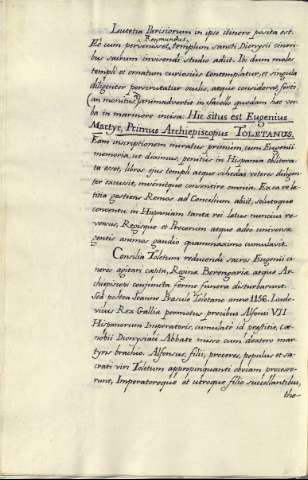 Lutetiæ Parisiorum in ipso itinere posita est.
Raymundus
Et cum pervenisset, templum sancti Dionysii cineri-
bus sacrum invisendi studio adiit. Ibi dum moles
templi et ornatum curiosius contemplatur, et singula
diligenter perscrutatur oculis, atque considerat, fortè
(an monitus?) animadvertit in sacello quodam hæc ver-
ba in marmore incisa: Hic situs est Eugenius
Martyr, Primus Archiepiscopus TOLETANUS.
Eam inscriptionem miratus primùm, cum Eugenii
memoria, ut diximus, penitùs in Hispania oblitera-
ta esset, libros ejus templi atque schedas veteres diligen-
ter excussit, invenitque convenire omnia. Ex ea re læ-
titia gestiens Remos ad Concilium abiit, solutoque
conventu in Hispaniam tanta rei latus nuncius re-
versus, Regisque et Procerum atque adeo universæ
gentis animos gaudio quamaximo cumulavit.
Consilia Toletum reducendi sacros Eugenii ci-
neres agitari capta, Regina Berengaria, atque Ar-
chipiscopi conjuncta ferme funera disturbarunt.
Sed postea Joanne Præsule Toletano anno 1156. Ludo-
vicus Rex Galliæ permotus precibus Alfonsi VII
Hispanorum Imperatoris, cumulatè id præstitit, cœ-
nobii Dionysiaci Abbate misso cum dextero mar-
tyris brachio. Alfonsus, filii, proceres, populus et sa-
crati viri Toletum appropinquanti obviam processe-
runt, Imperatoreque et utroque filio succollantibus,
the-